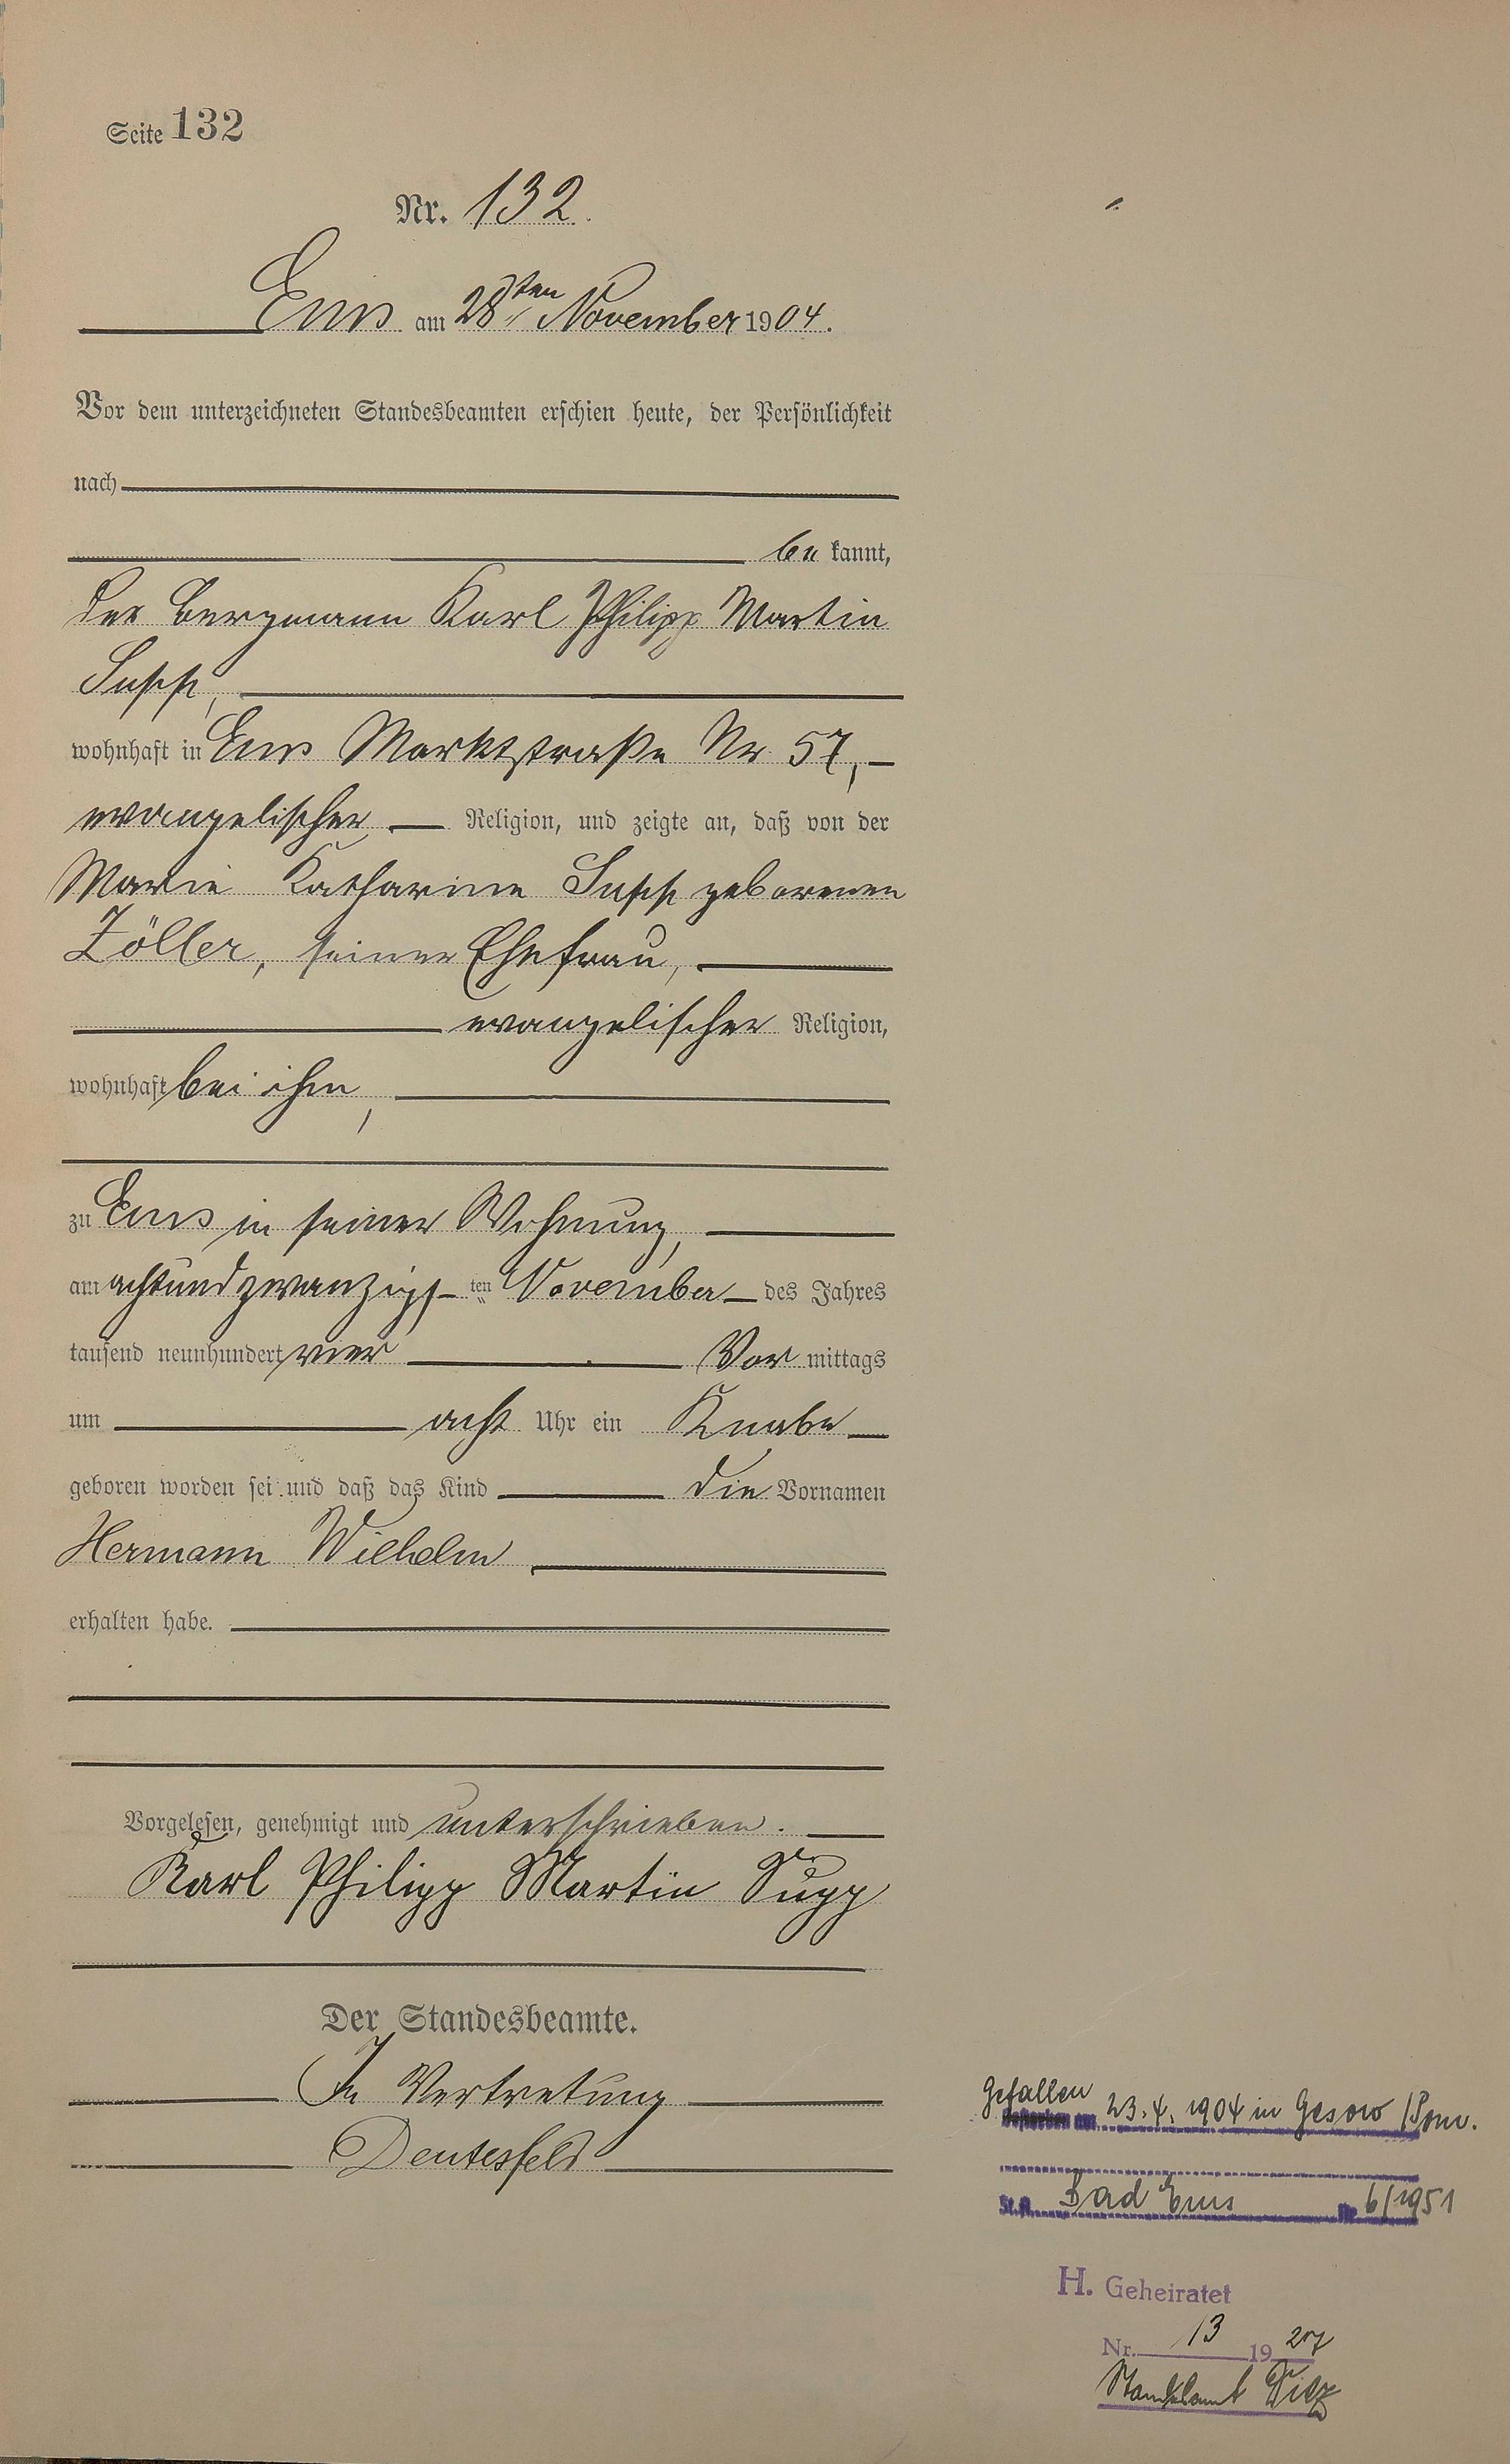 Seite 132
Nr. 132.
Ems am 28ten November 1904.
Vor dem unterzeichneten Standesbeamten erschien heute, der Persönlichkeit
nach
be kannt,
der Bergmann Karl Philipp Martin
Supp,
wohnhaft in Ems Marktstraße Nr. 57,
evangelischer Religion, und zeigte an, daß von der
Marie Katharine Supp geborenen
Zöller, seiner Ehefrau,
evangelischer Religion,
wohnhaft bei ihm,
zu Ems in seiner Wohnung,
am achtundzwanzigs ten November des Jahres
tausend neunhundert vier Vor mittags
um acht Uhr ein Knabe
geboren worden sei und daß das Kind die Vornamen
Hermann Wilhelm
erhalten habe.
Vorgelesen, genehmigt und unterschrieben.
Karl Philipp Martin Supp
Der Standesbeamte.
In Vertretung
Deutesfeld
Gefallen
Gestorben am 23.4.1904 in Gesow /Pom.
St.A. Bad Ems Nr. 6/1951
H. Geheiratet
Nr. 13 1927
Standesamt Diez